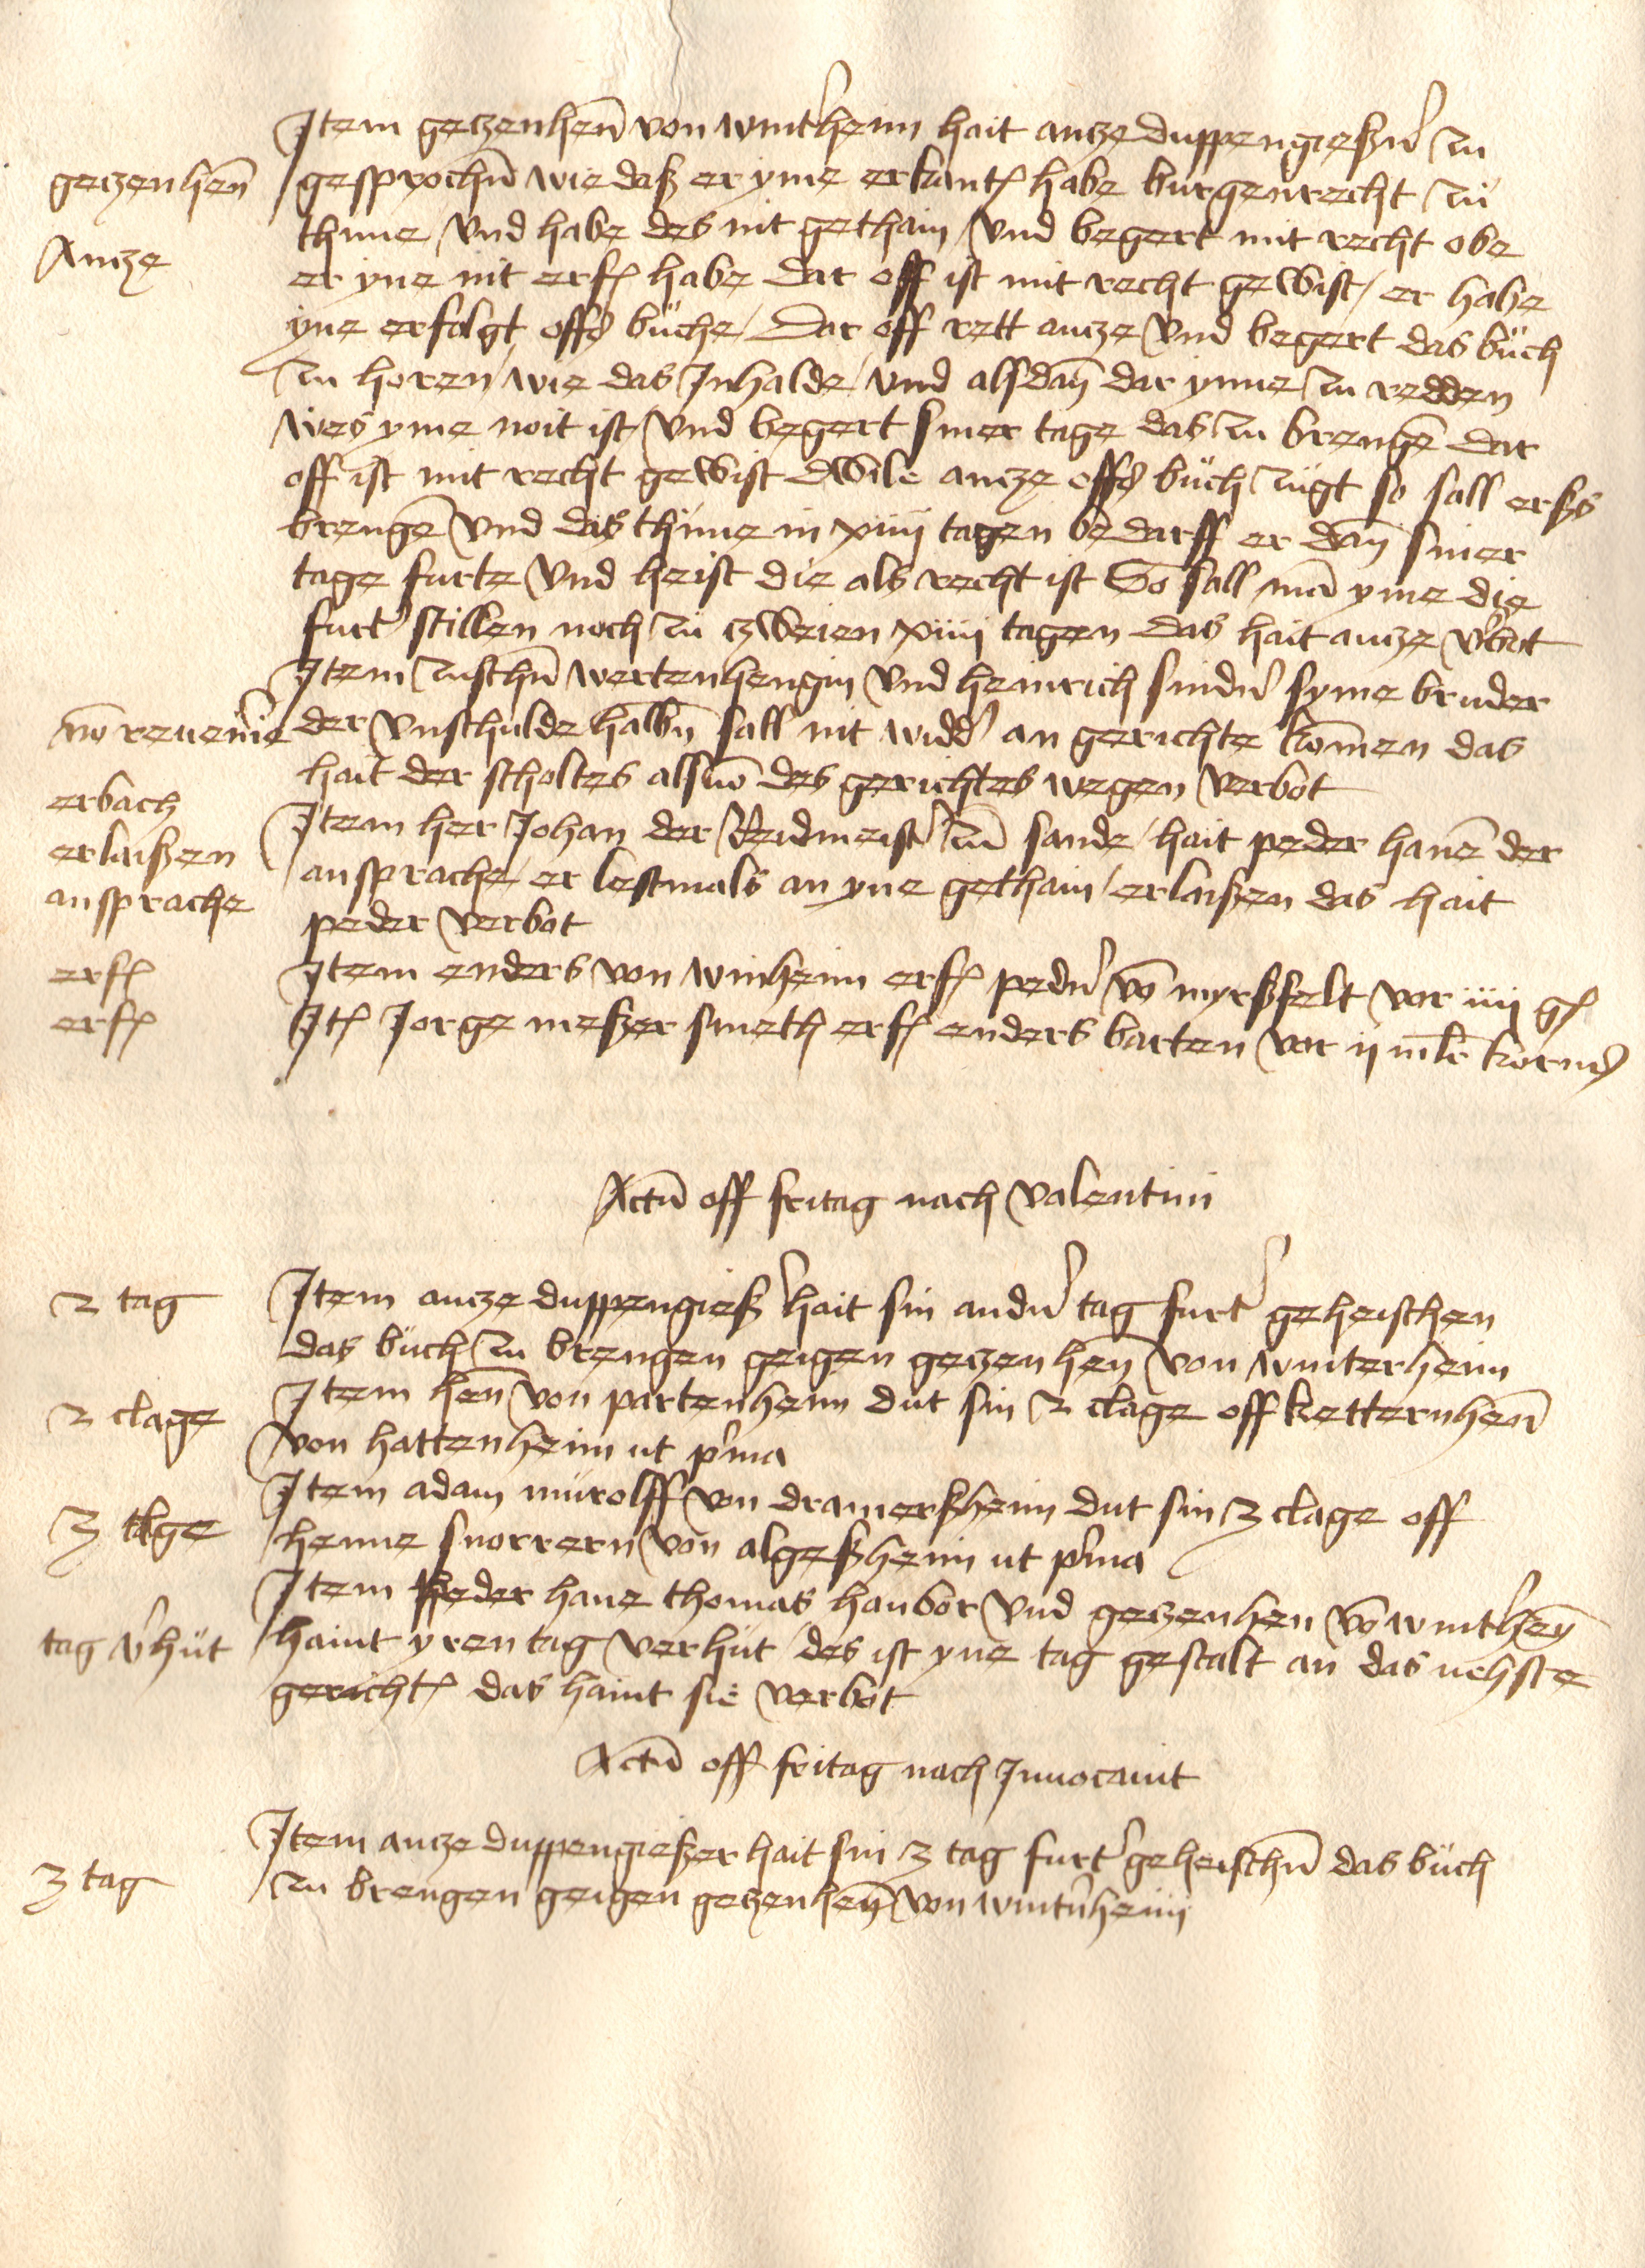 Item geczenhen̄ von wint'heim hait ancze duppengießn' zu
geczenhen̄ gesprochn̄ wie daß er yme erkant habe burgenrecht zu
thune vnd habe des nit gethain vnd begert mit recht obe
Ancze er yne nit erf habe dar off ist mit recht gewist / er habe
yne erfolgt offs buche / Dar off rett ancze vnd begert das buch
zu horen / wie das Inhalde / vnd alsdan̄ dar ynne zu redden
wes yme noit ist / vnd begert siner tage das zu brengē dar
off ist mit recht gewist dwile ancze offs buch zugt so sall erßs
brengē vnd das thune in xiiii tagen bedarff er dan̄ siner
tage furte vnd heist die als recht ist So sall mā yme die
furt' stillen noch zu zweien xiiii tagen das hait ancze v'bot
Item zuschn̄ wertenhengin vnd heinrich snidn' syme bruder
nō reueni'e der vnschulde halbn̄ sall nit widd' an gerichte komen das
hait der scholtes alsuo des gerichtes wegen verbot
erbach Item her Johan der Redmeist' zu sande / hait peder hanē der
erlaißen ansprache / er lestmals an yne gethain / erlaißen das hait
ansprache peder verbot
erf Item enders von winheim erf pedn' vō myrßfelt vor iiii g
erf It Jorge meßersmeth erf enders barten vor ii mlr korns
Actū off fritag nach valentini
2 tag Item ancze duppengieß' hait sin andn' tag furt' geheischen
das buch zu brengen geigen geczenhen̄ von winterheim
2 clage Item hen̄ von partenheim dut sin 2 clage off ketternhen̄
von hattenheim ut p'ma
3 clage Item adam murolff von dramerßheim dut sin 3 clage off
henne snorrern von algeßheim ut p'ma
Item peder hane thomas hanbor vnd geczenhen vō wint'hey̅
tag v'hut haint yren tag verhut / des ist yne tag gestalt an das nehste
gericht das haint sie verbot
Actū off fritag nach Inuocauit
Item ancze duppengießer hait sin 3 tag furt' geheischn̄ das buch
3 tag zu brengen geigen geczenhen̄ von wintn'heim